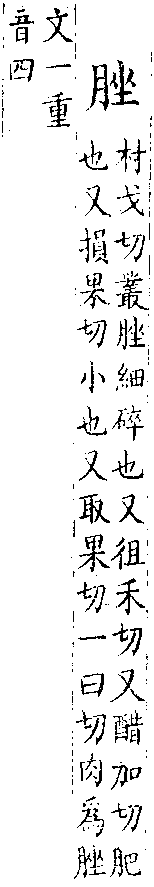 脞
村戈切叢脞細碎也又徂禾切又醋加切肥
也又損果切小也又取果切一曰切肉為脞
文一重
音四